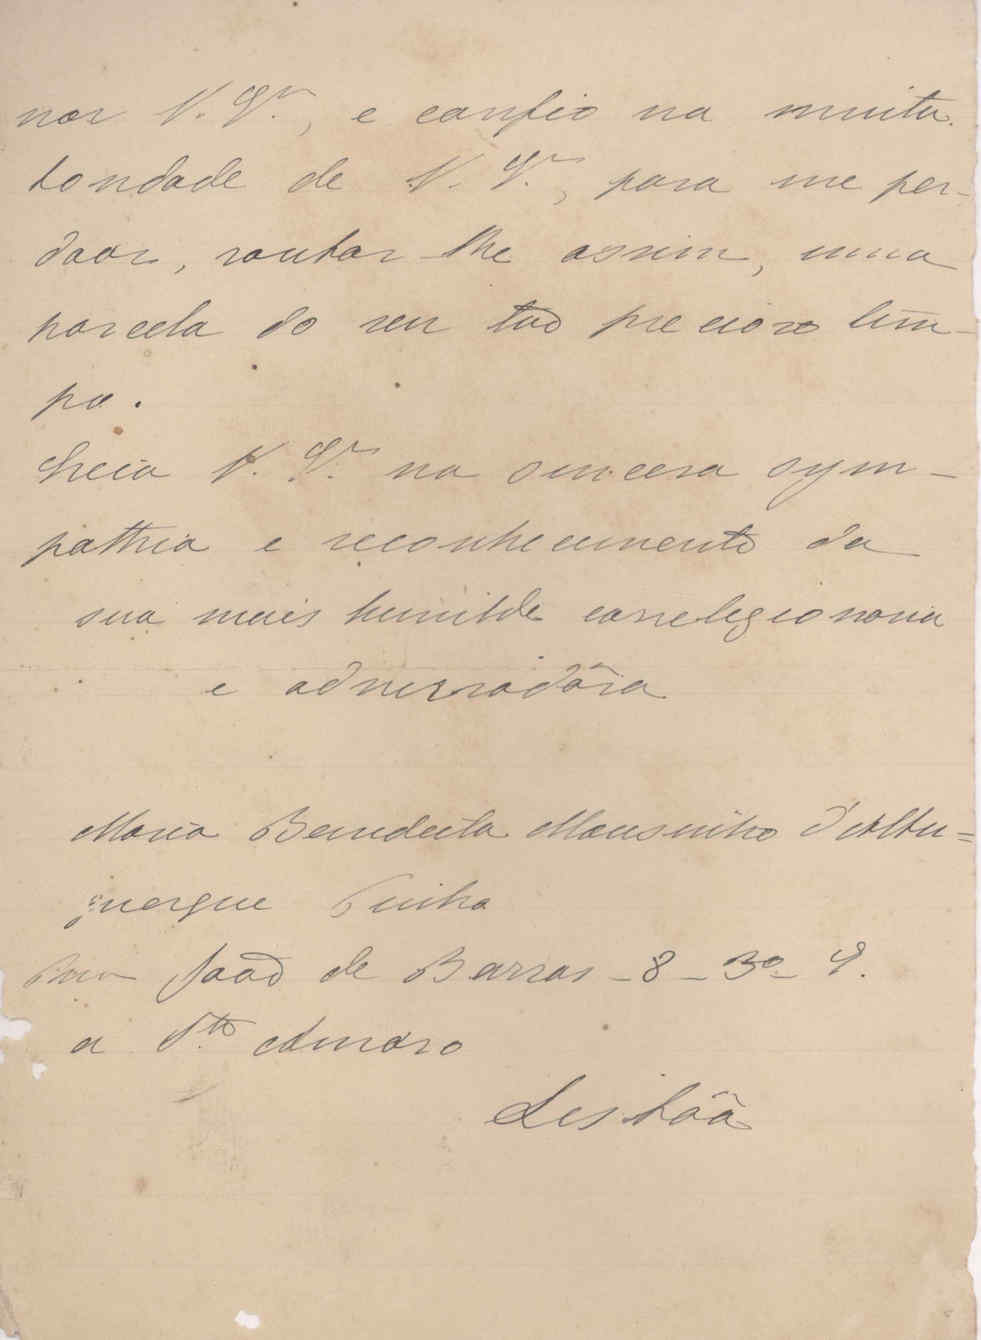 nor V. Ex.ª, e confio na muita
bondade de V. Ex.ª, para me per-
doar, roubar-lhe assim, uma
parcela do seu tão precioso tem-
po.
Creia V. Ex.ª na sincera sym-
pathia e reconhecimento da
sua mais humilde correlegionaria
e admiradôra
Maria Benedicta Mousinho d'Albu=
querque Pinho
Rua João de Barros - 8 - 3º - E.
a Sto Amaro
Lisbôa